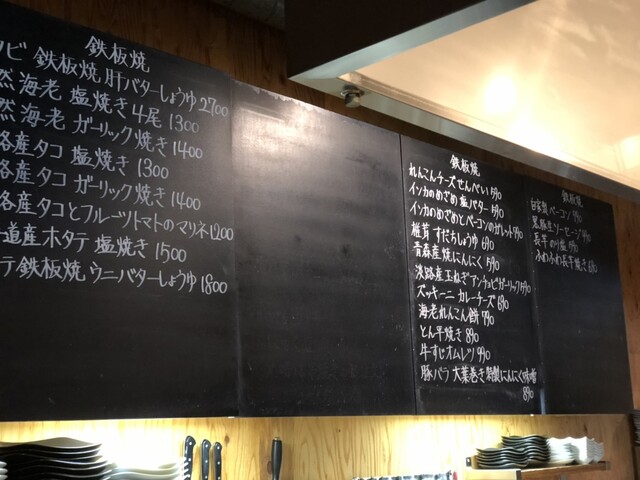 鉄板焼
ビ 鉄板焼 肝バターしょうゆ 2700
然海老 塩焼き 4尾 1300
然海老 ガーリック焼き 1400
路産タコ 塩焼き 1300
路産タコ ガーリック焼き 1400
路産タコとフルーツトマトのマリネ 1200
道産ホタテ 塩焼き 1500
テ鉄板焼 ウニバターしょうゆ 1800
鉄板焼
れんこんチーズせんべい 590
インカのめざめ 塩バター 590
インカのめざめとベーコンのガレット 990
椎茸 すだちしょうゆ 690
青森産 焼にんにく 590
淡路産 玉ねぎアンチョビガーリック 590
ズッキーニ カレーチーズ 690
海老れんこん餅 990
とん平焼き 890
牛すじオムレツ 990
豚バラ 大葉巻き 特製にんにく味噌
890
鉄板焼
自家製ベーコン
黒豚生ソーセージ
長芋 のり塩
ふわふわ長芋焼き 690